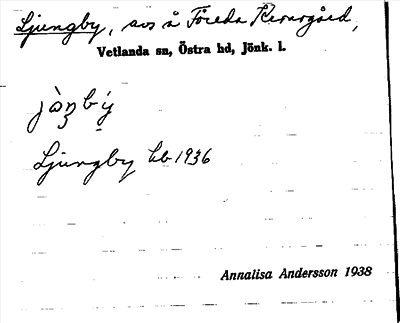 Ljungby, avs å Föreda Storegård,
Vetlanda sn, Östra hd, Jönk. l.
Ljungby kb 1936
Annalisa Andersson 1938